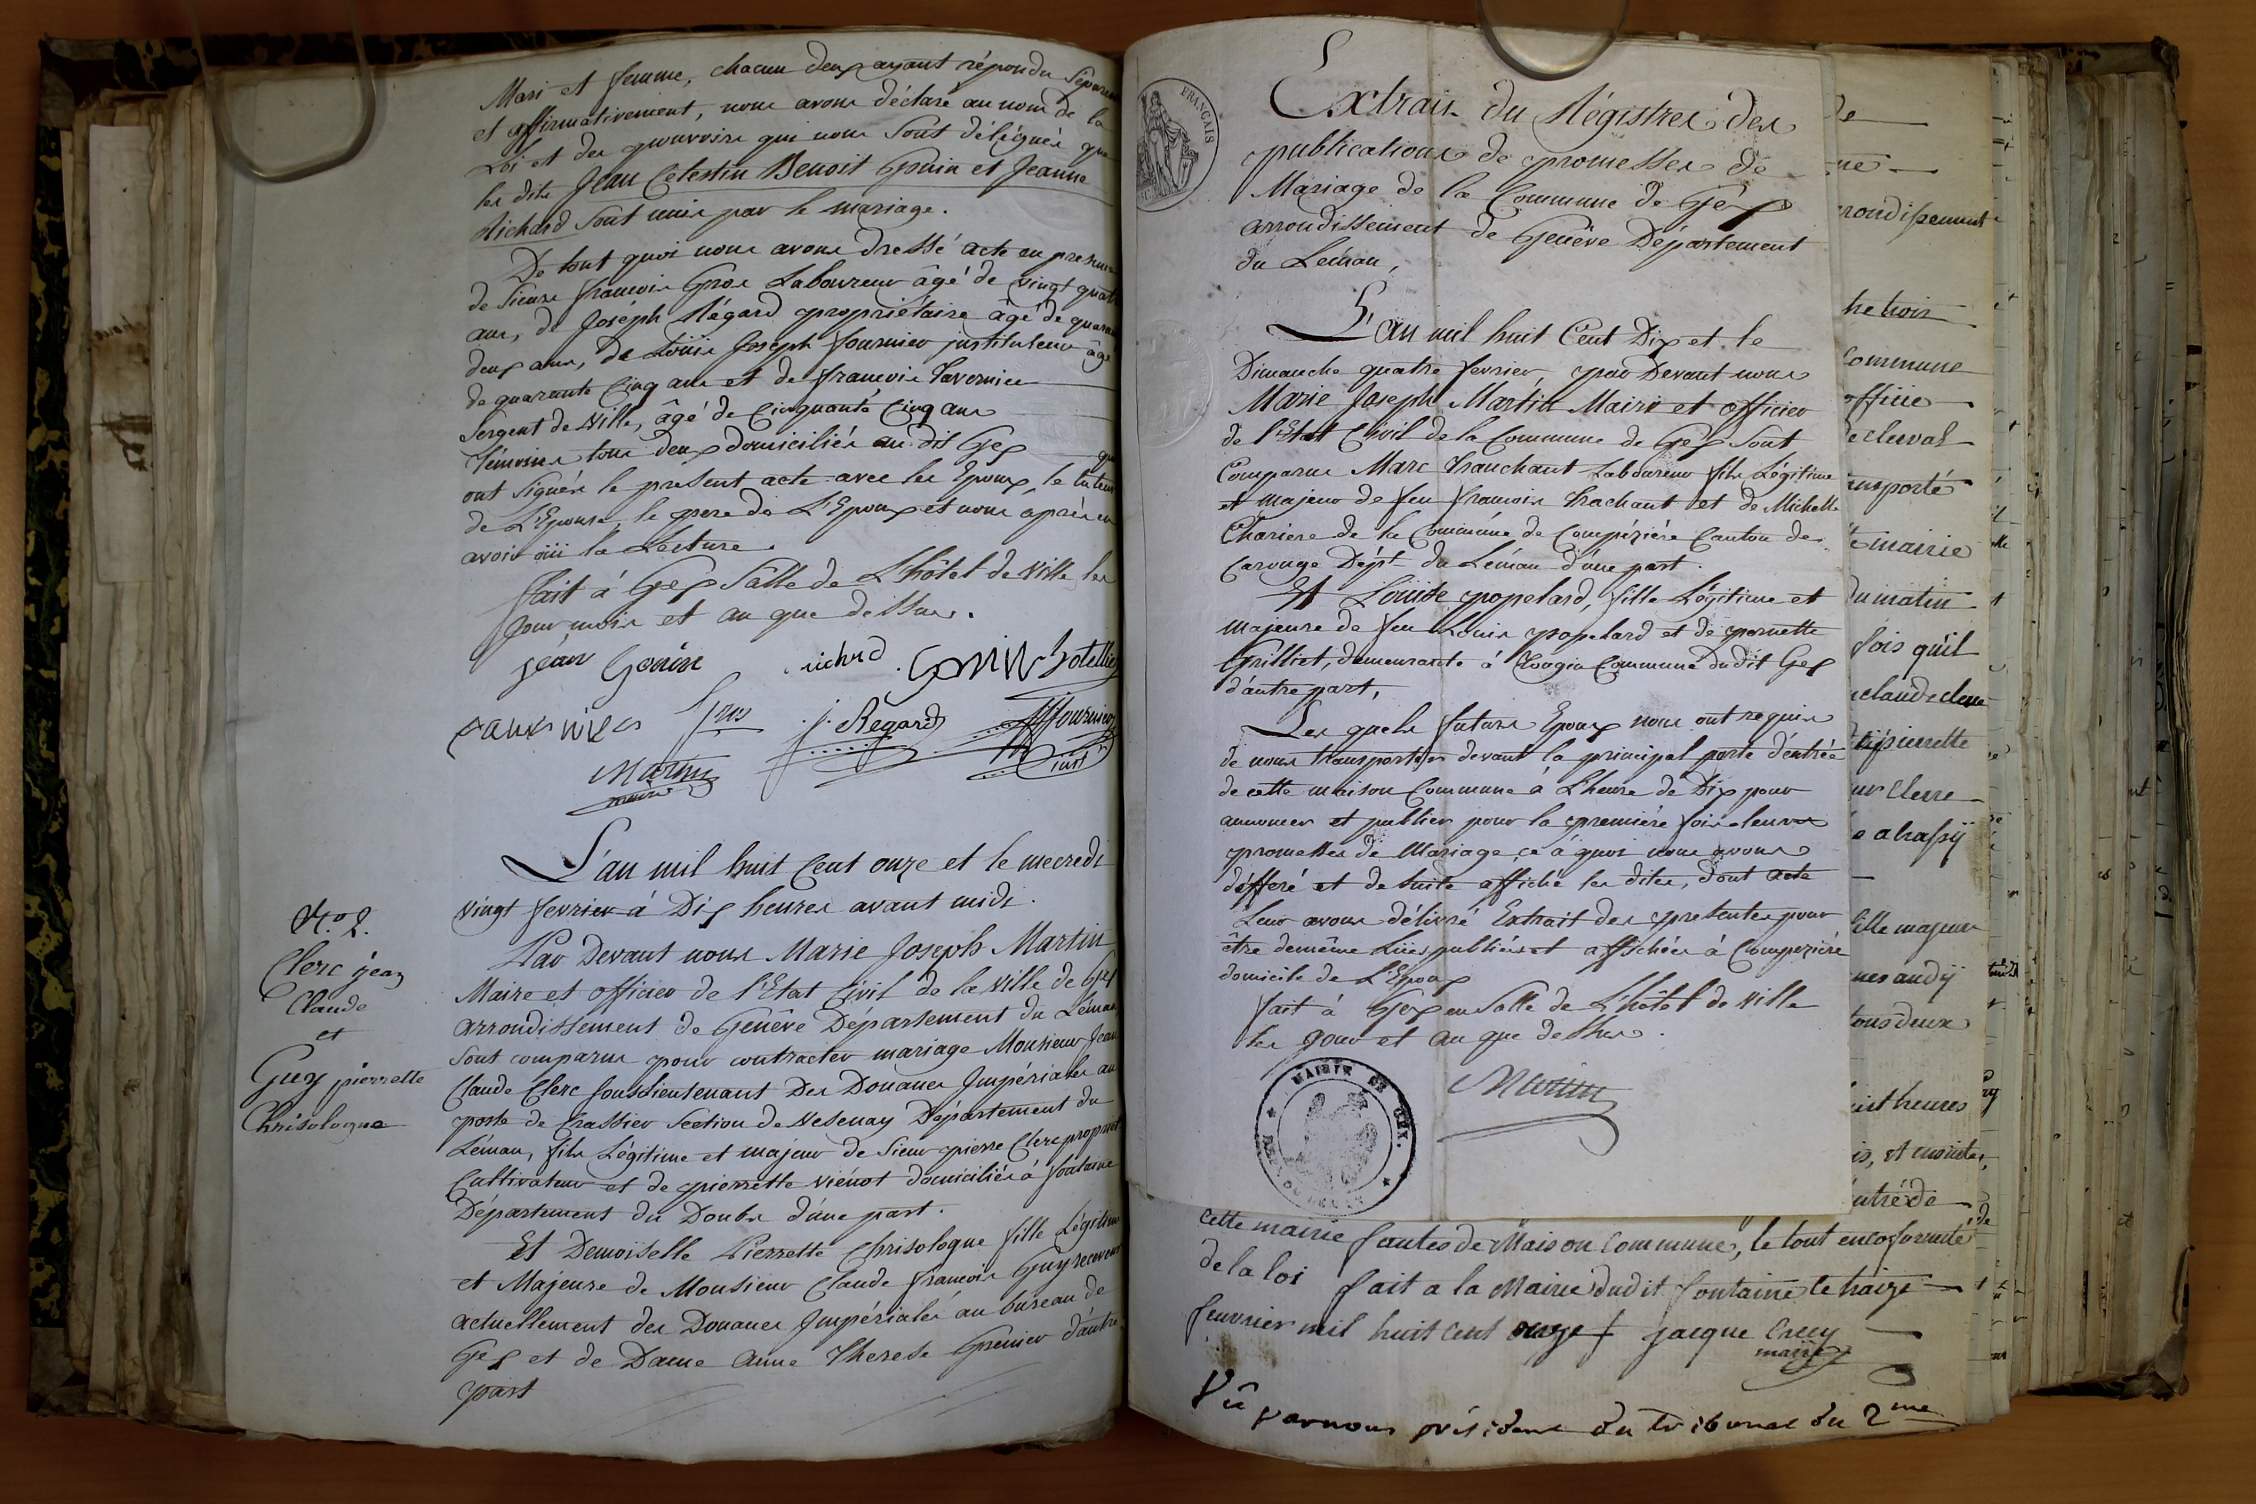 Mari et femme, chacun deux ayant répondu séparem
et affirmativement, nous avons déclaré au nom de la
Loi et des pouvoirs qui nous sont délégués que
les dits Jean Celestin Benoit Gonin et Jeanne
Richard sont unis par le mariage.
De tout quoi nous avons dressé acte en presence
de Sieurs francois Gros Laboureur âgé de vingt quatre
ans, de Joséph Régard propriétaire âgé de quarante
deux ans, de Loüis Joseph fournier instituteur âgé
de quarante Cinq ans et de francois Tavernier
Sergent de Ville, âgé de Cinquante Cinq ans
Témoins tous deux domiciliés au dit Gex qui
ont signés le présent acte avec les Epoux, le tuteur
de L'Epouse, le pere de L'Epoux et nous après en
avoir oüi la Lecture.
fait à Gex Salle de L'hôtel de Ville les
Jour mois et an que dessus.
jean Gonin richard Gonin hotellier
Gros j. Regard JJfournier
Martin inst
maire
L'an mil huit Cent onze et le mecredi
vingt fevrier à Dix heures avant midi.
N.º 2.
Clerc jean
Claude
et
Guy pierrette
Chrisologue
Par Devant nous Marie Joseph Martin
Maire et officier de l'Etat Civil de la Ville de Gex
arrondissement de Genêve Département du Léman
sont comparus pour contracter mariage Monsieur Jean
Claude Clerc sousLieutenant Des Douanes Impériales au
poste de Crassier Section de Vesenay Département du
Léman, fils Légitime et majeur de Sieur pierre Clerc propriet
Cultivateur et de pierrette viénot domiciliés à fontaine
Département du Doubs d'une part.
Et Demoiselle Pierrette Chrisologue fille Légitime
et Majeure de Monsieur Claude francois Guy receveur
actuellement des Douanes Impériales au bureau de
Gex et de Dame Anne Therese Grenier d'autre
part
FRANÇAIS
Extrait du Régistres des
publications de promesses de
Mariage de la Commune de Gex
arrondissement de Genêve Département
du Léman,
L'an mil huit Cent Dix et le
Dimanche quatre fevrier par Devant nous
Marie Joseph Martin Maire et officier
de l'Etat Civil de la Commune de Gex sont
Comparus Marc Tranchant Laboureur fils Légitime
et majeur de feu francois Trachant et de Michelle
Chariere de la Commune de Compéziére Canton de
Carouge Dépt. du Léman d'une part.
Et Loüise popelard, fille Légitime et
majeure de feu Louis popelard et de pernette
Grilliet, demeurante à Commune dudit Gex
d'autre part,
Les quels futurs Epoux nous ont requis
de nous transporter devant la principal porte d'entrée
de cette maison Commune à L'heure de Dix pour
annoncer et publier pour la première fois leurs
promesses de Mariage, ce à quoi nous avons
défferé et de suite affiché les dites, dont acte
Leur avons délivré Extrait des presentes pour
être demême Lües publiés et affichées à Compeziére
domicile de L'Epoux
fait à Gex en Salle de L'hôtel de Ville
les jour et an que dessus.
Martin
MAIRIE DE GEX.
de
ne
rondissement
he trois
Commune
office
de clerval
ansporté
te mairie
du matin
fois quil
claude clerc
pierrette
ur Clerc
fille majeure
tous deux
huit heures
entré de
cette mairie fautes de Maison Commune, le tout en coformité
de la loi fait a la Mairie dudit fontaine le traize
feuvrier mil huit cent onze jacque Cucey
maire
Vû par nous président du tribunal du 2me